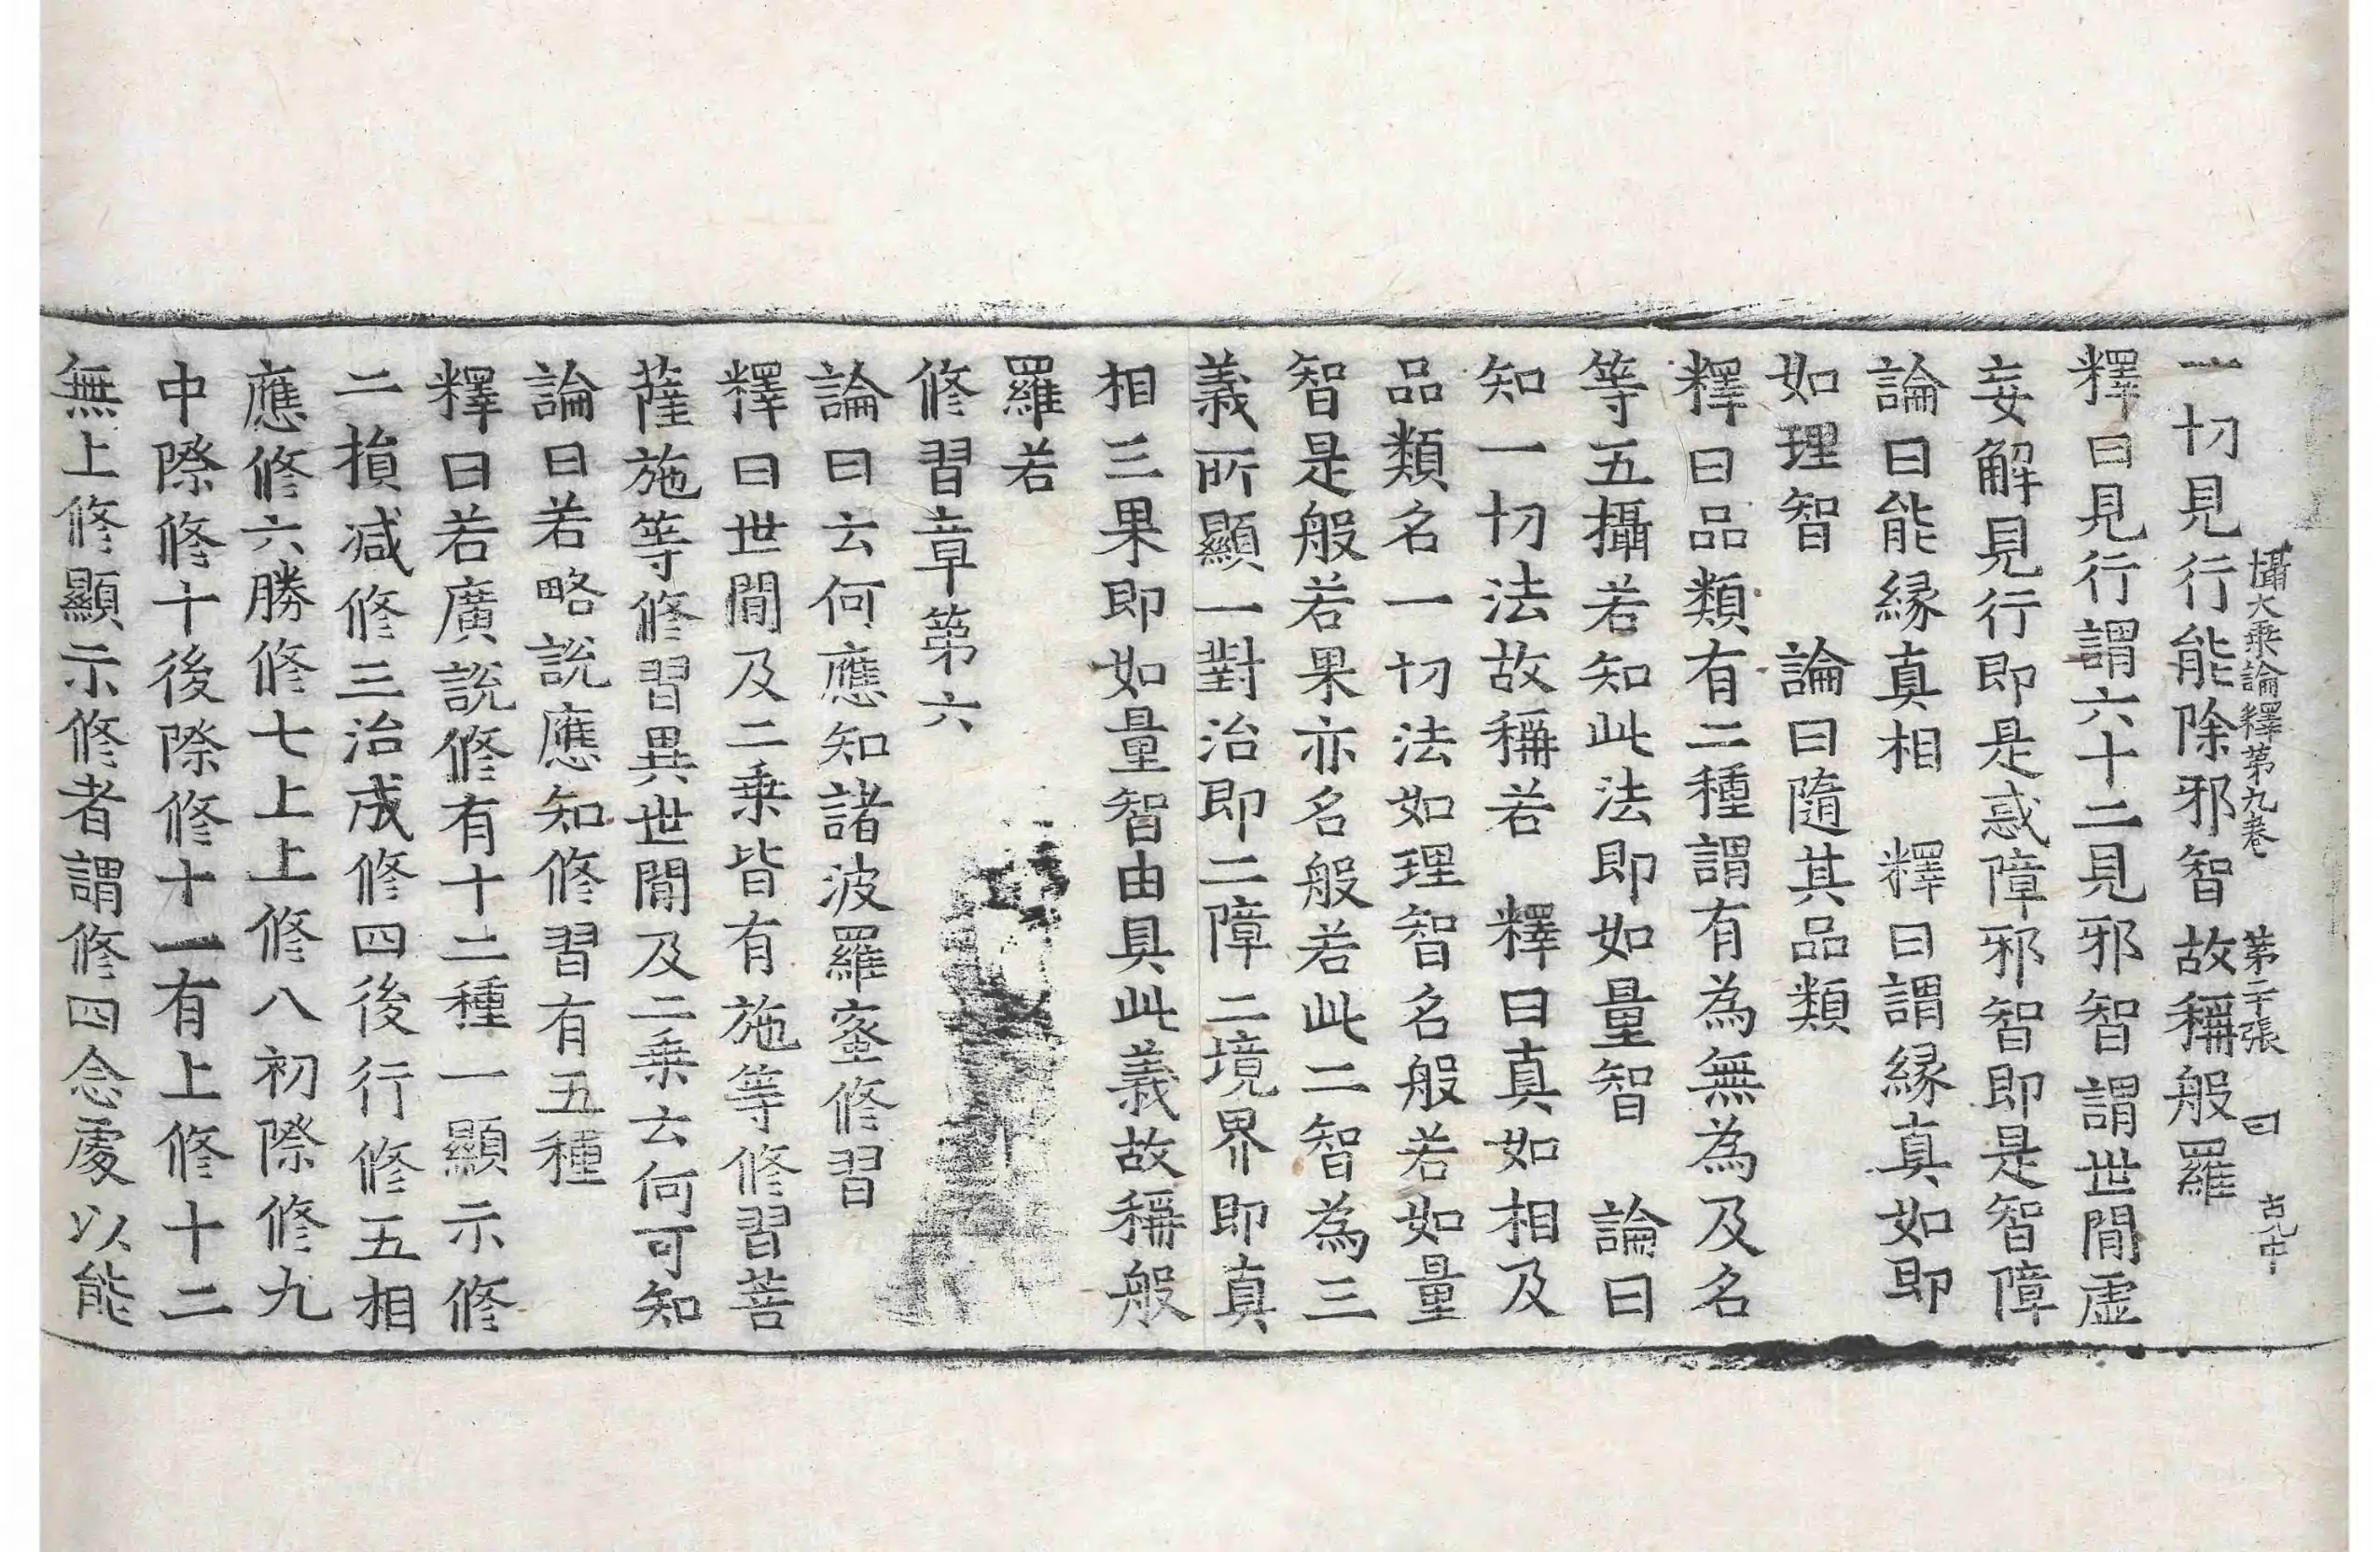 攝大乘論釋第九卷 第二十張 曰
一切見行能除邪智故稱般羅
釋曰見行謂六十二見邪智謂世間虛
妄解見行即是惑障邪智即是智障
論曰能緣真相 釋曰謂緣真如即
如理智 論曰隨其品類
釋曰品類有二種謂有為無為及名
等五攝若知此法即如量智 論曰
知一切法故稱若 釋曰真如相及
品類名一切法如理智名般若如量
智是般若果亦名般若此二智為三
義所顯一對治即二障二境界即真
相三果即如量智由具此義故稱般
羅若
修習章第六
論曰云何應知諸波羅蜜修習
釋曰世間及二乘皆有施等修習菩
薩施等修習異世間及二乘云何可知
論曰若略說應知修習有五種
釋曰若廣說修有十二種一顯示修
二損減修三治成修四後行修五相
應修六勝修七上上修八初際修九
中際修十後際修十一有上修十二
無上修顯示修者謂修四念處以能